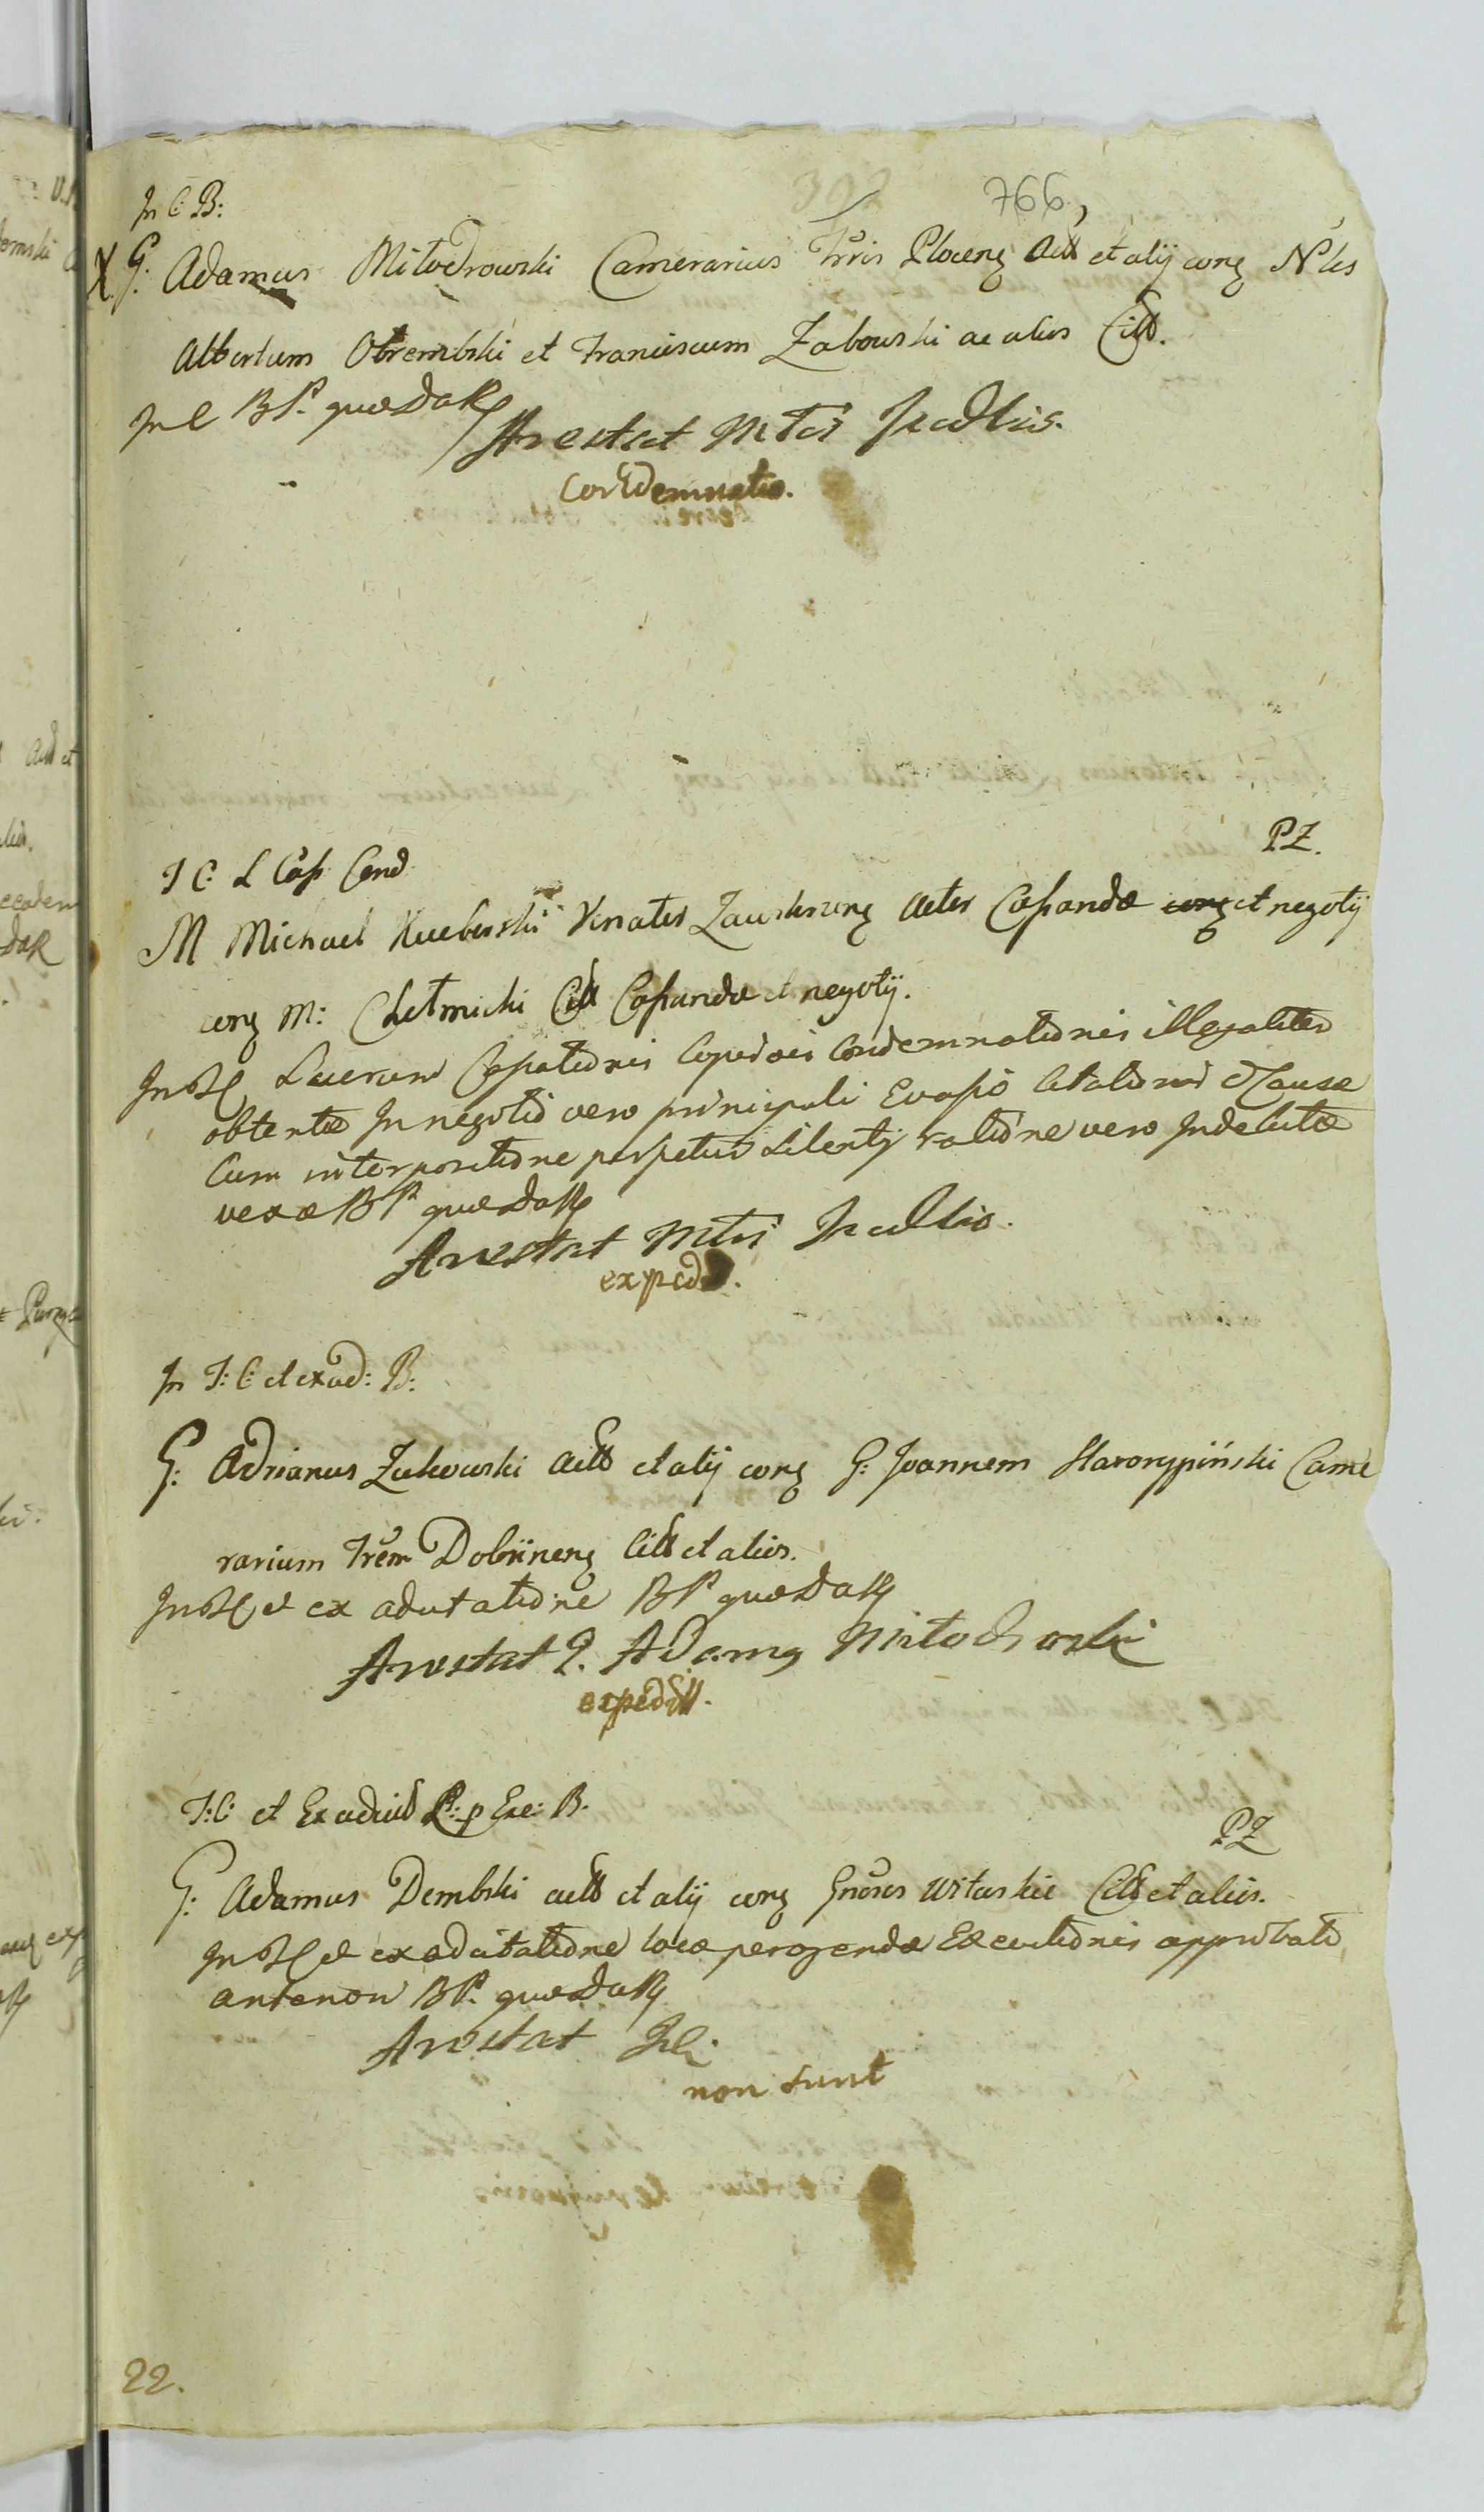 766,
In C: B:
X G. Adamus Miłodrowski Camerarius Trris Plocens Actt et alij cons N'les
Albertum Otrembski et Franciscum Zabowski ac alios Citt.
In C BP. quaedaR
Arestat Mtci Jnallis.
Condemnatio.
P.Z.
I C: L Cap Cond
M Michael Venator Zawskrzens Actor Cassandae cons et negotij
cons M: Chełmicki Citt Cassandae et negotij.
Lucrum Cassationis Copiae Condemnationis illegaliter
obtentae In negotio vero principali Evasio Citationis et Causae
Cum interpositione perpetui Silentij ratione vero Indebitae
vexae BP quaedaR
Arestat Mtci Jnallis.
expedit.
In T: C: et exad: B:
G: Adrianus Zukowski Actt et alij cons G: Joannem Starorypiński Came
rarium Trem Dobrinens Citt et alios.
et ex adcitatione BP quaedaR
Arestat G. Adams Miłodrowski
expedit.
T: C: et Ex adcitt R: p Exe: B.
P.Z
G: Adamus Dembski actt et alij cons Gnoses Witoskie Citt et alios.
et ex adcitatione loco peragendae Executionis approbatio
antenon BP. quaedaR
Arestat
non sunt
22.